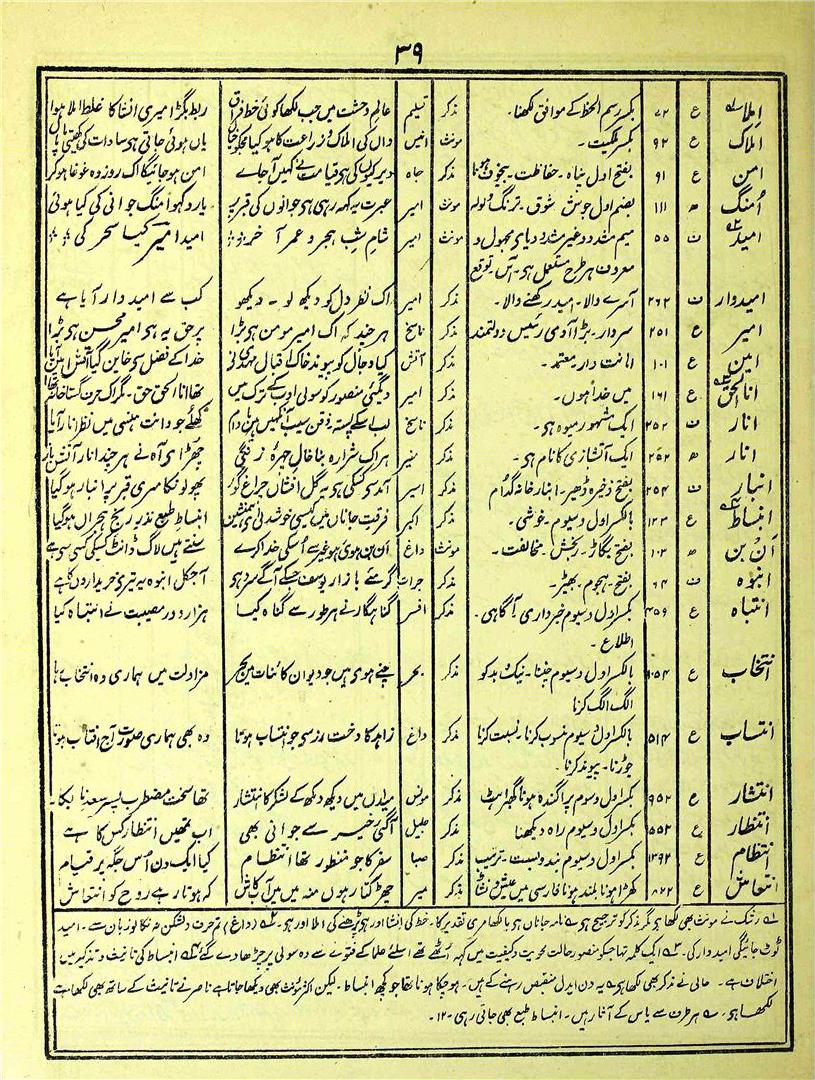 ۳۹
املا ع ۷۲ بکسر رسم الخط کے موافق لکھنا۔ مذکر تسلیم عالم وحشت میں جب لکھا کوئی خط فراق ربط بگڑا میری انشا کا غلط املا ہوا
املاک ع ۹۲ بکسر ملکیت۔ مونث انیس واں کی املاک و زراعت کا ہو کیا یاں ہوئی جاتی ہی سادات کی کھیتی پامال
امن ع ۹۱ بفتح اول پناہ۔ حفاظت۔ بیخوف ہونا مذکر جاہ دیر کیوں کی ہی قیامت نے کہیں آ جاے امن ہو جائیگا اک روز وہ غوغا ہو کر
اُمنگ ھ ۱۱۱ بضم اول جوش شوق۔ ترنگ ولولہ مونث امیر عبرت یہ کہہ رہی ہی جوانوں کی قبر پر یارو کہو اُمنگ جوانی کی کیا ہوئی
امید ف ۵۵ میم مشدد و غیر مشدد و یای مجہول و مونث امیر شامِ شبِ ہجر و عمر آخر امید امیر کیا سحر کی
معروف ہر طرح مستعمل ہی۔ آس توقع
امیدوار ف ۲۶۲ آسرے والا۔ امید رکھنے والا۔ مذکر امیر اک نظر دل کو دیکھ لو۔ دیکھو کب سے امیدوار آیا ہے
امیر ع ۲۵۱ سردار۔ بڑا آدمی رئیس دولتمند مذکر ناسخ ہر چند کہ اک امیر مومن ہی بڑا برحق یہ ہی امیر محسن ہی بڑا
امین ع ۱۰۱ امانت دار معتمد۔ مذکر آتش کیا دجال کو پیوند خاک اقبال مہدی نی خدا کے فضل سی خاین گیا آتش امین آیا
انا الحق ع ۱۶۱ میں خدا ہوں۔ مذکر امیر دیگئی منصور کو سولی ادب کے ترک میں تھا انا الحق حق۔ مگر اک حرف گستاخانہ تھا
انار ف ۲۵۲ ایک مشہور میوہ ہی۔ مذکر ناسخ لب اسکے پستہ ذقن سیب آنکھیں ہیں بادام کھلے جو دانت ہنسی میں نظر انار آیا
انار ھ ۲۵۲ ایک آتشبازی کا نام ہی۔ مذکر منیر ہر اک شرارہ بنا خالِ چہرۂ زنگی چھڑا ہی آہ نے ہر چند انار آتشبار
انبار ف ۲۵۴ بفتح ذخیرہ ڈھیر۔ انبار خانہ گدام مذکر اسیر آمد کسکی ہی یہ گل افشاں چراغِ گور پھولونکا مری قبر پر انبار ہو گیا
انبساط ع ۱۲۳ بالکسر اول و سیوم۔ خوشی۔ مذکر اکبر فرقتِ جاناں میں کیسی خوشدلی ای ہمنشیں انبساطِ طبع نذرِ رنجِ ہجراں ہوگیا
اَن بن ھ ۱۰۳ بفتح بگاڑ۔ رنجش۔ مخالفت۔ مونث داغ ان بن ہوی ہو غیر سے اُسکی خدا کرے سنتے ہیں لاگ ڈانٹ کسیکی کسی سی ہے
انبوہ ف ۶۴ بفتح۔ ہجوم۔ بھیڑ۔ مذکر جرات گر مئے بازار یوسف جسکے آگے سرد ہو آجکل انبوہ یہ تیرے خریداروں کا ہے
انتباہ ع ۴۵۹ بکسر اول و سیوم خبرداری۔ آگاہی۔ مذکر افسر گناہگار نے ہر طور سے گناہ کیا ہزار دور مصیبت نے انتباہ کیا
اطلاع۔
انتخاب ع ۱۰۵۴ بالکسر اول و سیوم چننا۔ نیک و بد کو مذکر بحر چنے ہوی ہیں جو دیوان کائنات میں بحر مزاولت میں ہماری وہ انتخاب رہا
الگ الگ کرنا
انتساب ع ۵۱۴ بالکسر اول و سیوم منسوب کرنا۔ نسبت کرنا مذکر داغ زاہد کا دختِ رز سی جو انتساب ہوتا وہ بھی ہماری صورت آج آفتاب ہوتا
جوڑنا۔ پیوند کرنا۔
انتشار ع ۹۵۲ بکسر اول و سوم پراگندہ ہونا گھبراہٹ مذکر مونس میداں میں دیکھ دیکھ کے لشکر کا انتشار تھا سخت مضطرب پسر سعد نابکار۔
انتظار ع ۱۵۵۲ بکسر اول و سیوم راہ دیکھنا مذکر جلیل آگئی خیر سے جوانی بھی اب تمھیں انتظار کس کا ہے
انتظام ع ۱۳۹۲ بکسر اول و سیوم بندوبست۔ ترتیب مذکر صبا سفر کا جو منظور تھا انتظام کیا ایک دن اُس جگہ پر قیام
انتعاش ع ۸۲۲ کھڑا ہونا بلند ہونا فارسی میں عیش و نشاط مذکر میر چھڑکتا رہوں منہ میں میں آب کاش کہ ہوتا رہے روح کو انتعاش
۱؎ رشک نے مونث بھی لکھا ہی مگر مذکر کو ترجیح ہی ؎ نامہ جاناں ہی یا لکھا مری تقدیر کا۔ خط کی انشا اور ہی پڑھنے کی املا اور ہی۔ ۲؎ (داغ) تم حرف دلشکن نہ نکالو زبان سے۔ امید
ٹوٹ جائیگی امیدوار کی۔ ۳؎ ایک کلمہ تھا جو کہ منصور حالت محویت و کیفیت میں کہہ اُٹھتے تھے اسلئے علما کے فتوے سے وہ سولی پر چڑھا دے گئے ۴؎ انبساط کی تانیث و تذکیر میں
اختلاف ہے۔ حالی نے مذکر بھی لکھا ہی ؎ یہ دن ایدل منقبض رہنے کے ہیں۔ ہو چکا ہونا تھا جو کچھ انبساط۔ لیکن اکثر مونث بھی دیکھا جاتا ہے ناصر نے تانیث کے ساتھ بھی لکھا ہے
لکھا ہو۔ ؎ ہر طرف سے یاس کے آثار ہیں۔ انبساط طبع بھی جاتی رہی۔ ۱۲۔